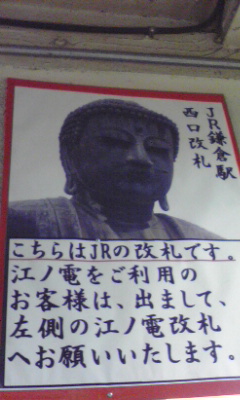 JR鎌倉駅
西口改札
こちらはJRの改札です。
江ノ電をご利用の
お客様は、出まして、
左側の江ノ電改札
へお願いいたします。